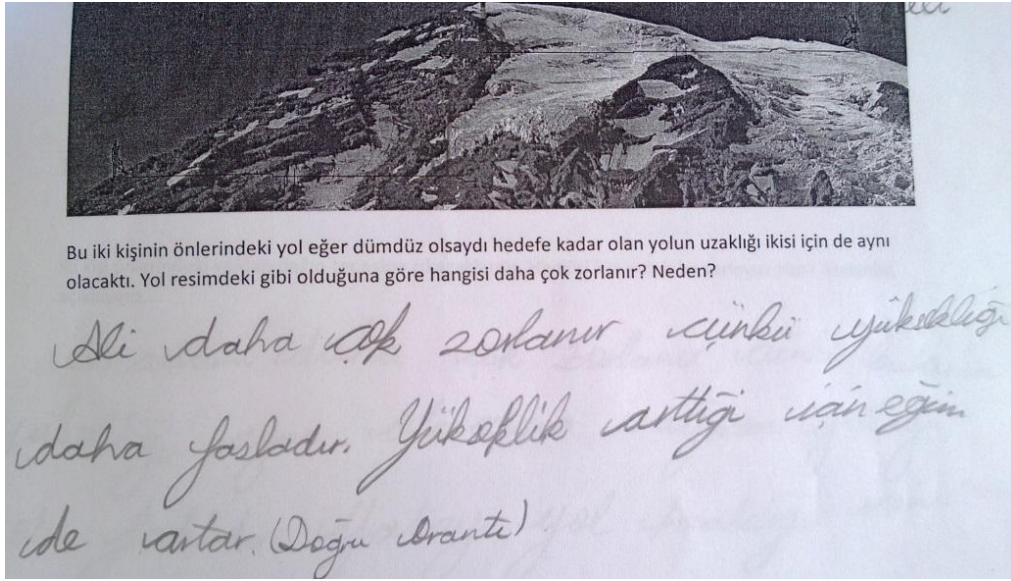 Bu iki kişinin önlerindeki yol eğer dümdüz olsaydı hedefe kadar olan yolun uzaklığı ikisi için de aynı
olacaktı. Yol resimdeki gibi olduğuna göre hangisi daha çok zorlanır? Neden?
Ali daha çok zorlanır çünkü yüksekliği
daha fazladır. Yükseklik arttığı için eğim
de artar. (Doğru Orantı)